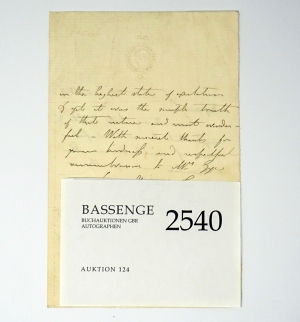 in the highest state of exultation
& yet it was the simple truth
of their nature and most wonder-
ful. With sincere thanks for
your kindness, and respectful
remembrances to Mrs
BASSENGE
BUCHAUKTIONEN GBR
AUTOGRAPHEN
2540
AUKTION 124